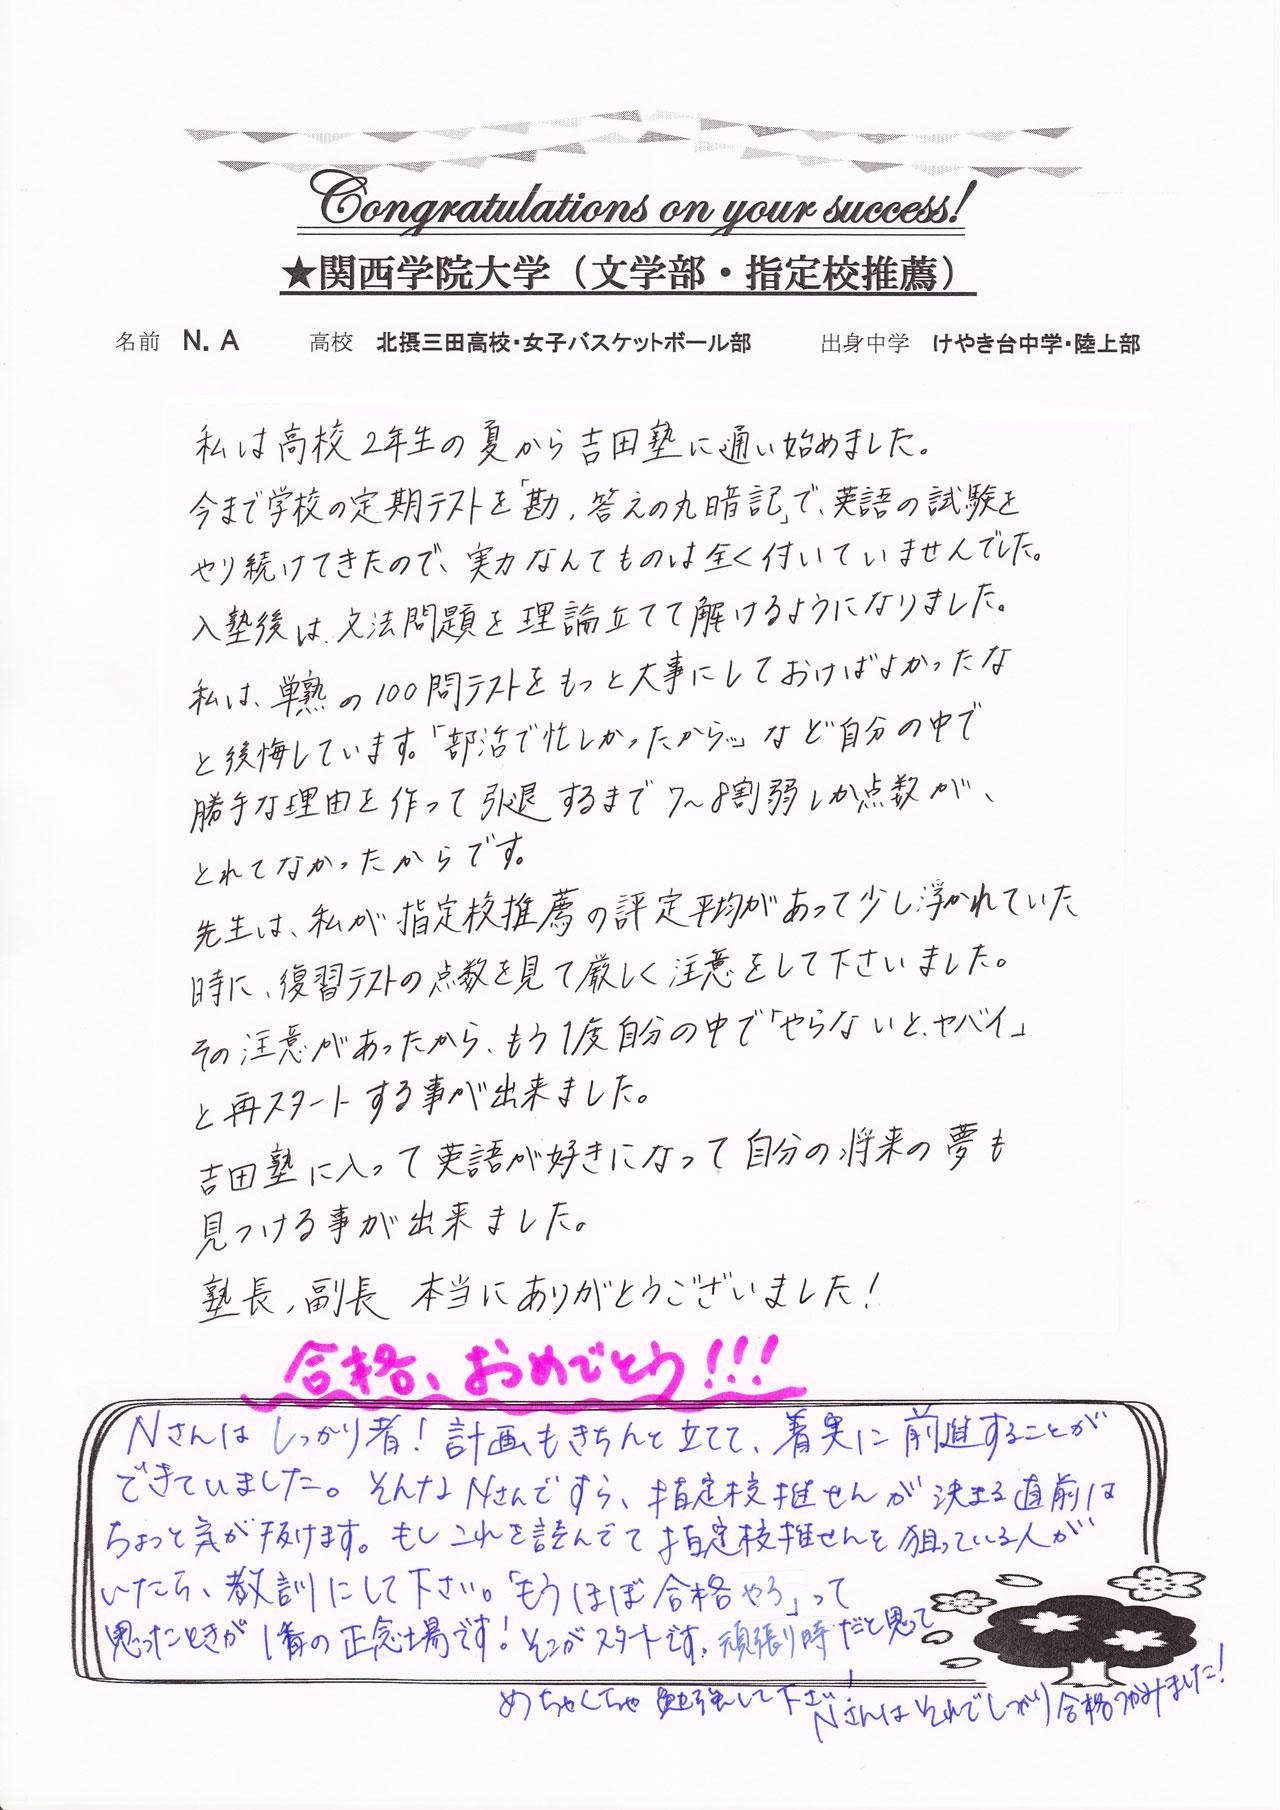 Congratulations on your success!
★関西学院大学（文学部・指定校推薦）
名前 N.A 高校 北摂三田高校・女子バスケットボール部 出身中学 けやき台中学・陸上部
私は高校2年生の夏から吉田塾に通い始めました。
今まで学校の定期テストを「勘、答えの丸暗記」で、英語の試験を
やり続けてきたので、実力なんてものは全く付いていませんでした。
入塾後は、文法問題を理論立てて解けるようになりました。
私は、単熟の100問テストをもっと大事にしておけばよかったな
と後悔しています。「部活で忙しかったから…」など自分の中で
勝手な理由を作って引退するまで7〜8割弱しか点数が、
とれてなかったからです。
先生は、私が指定校推薦の評定平均があって少し浮かれていた
時に、復習テストの点数を見て厳しく注意をして下さいました。
その注意があったから、もう1度自分の中で「やらないと、ヤバイ」
と再スタートする事が出来ました。
吉田塾に入って英語が好きになって自分の将来の夢も
見つける事が出来ました。
塾長、副長 本当にありがとうございました！
合格、おめでとう!!!
Nさんはしっかり者！計画もきちんと立てて、着実に前進することが
できていました。そんなNさんですら、指定校推せんが決まる直前は
ちょっと気が抜けます。もしこれを読んでて指定校推せんを狙っている人が
いたら、教訓にして下さい。「もうほぼ合格やろ」って
思ったときが1番の正念場です！そこがスタートです。頑張り時だと思って
めちゃくちゃ勉強して下さい！
Nさんはそれでしっかり合格つかみました！